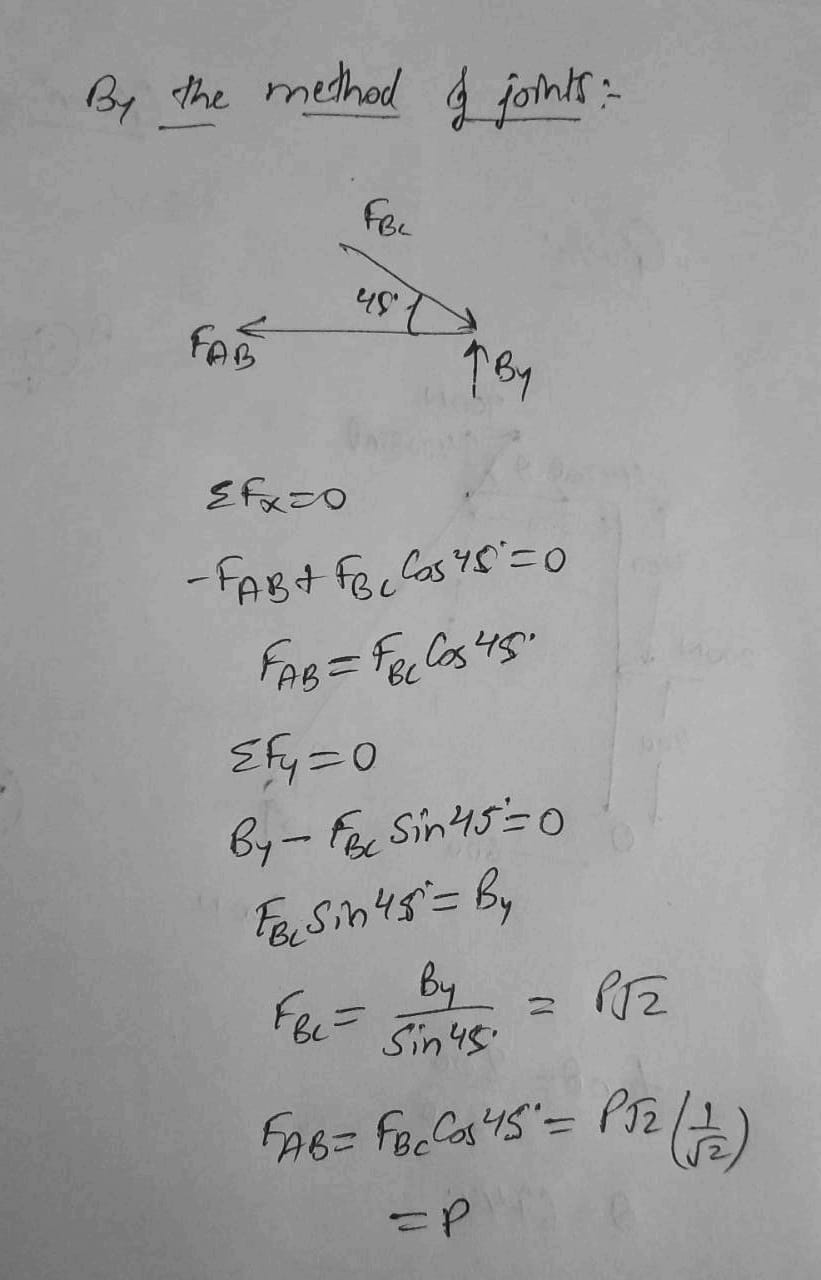 By the method of joints :-
FBC
45°
FAB
↑ By
ΣFx=0
-FAB + FBC Cos 45°=0
FAB = FBC Cos 45°
ΣFy=0
By - FBC Sin 45°=0
FBC Sin 45° = By
FBC = By / Sin 45° = P√2
FAB = FBC Cos 45° = P√2 (1/√2)
=P